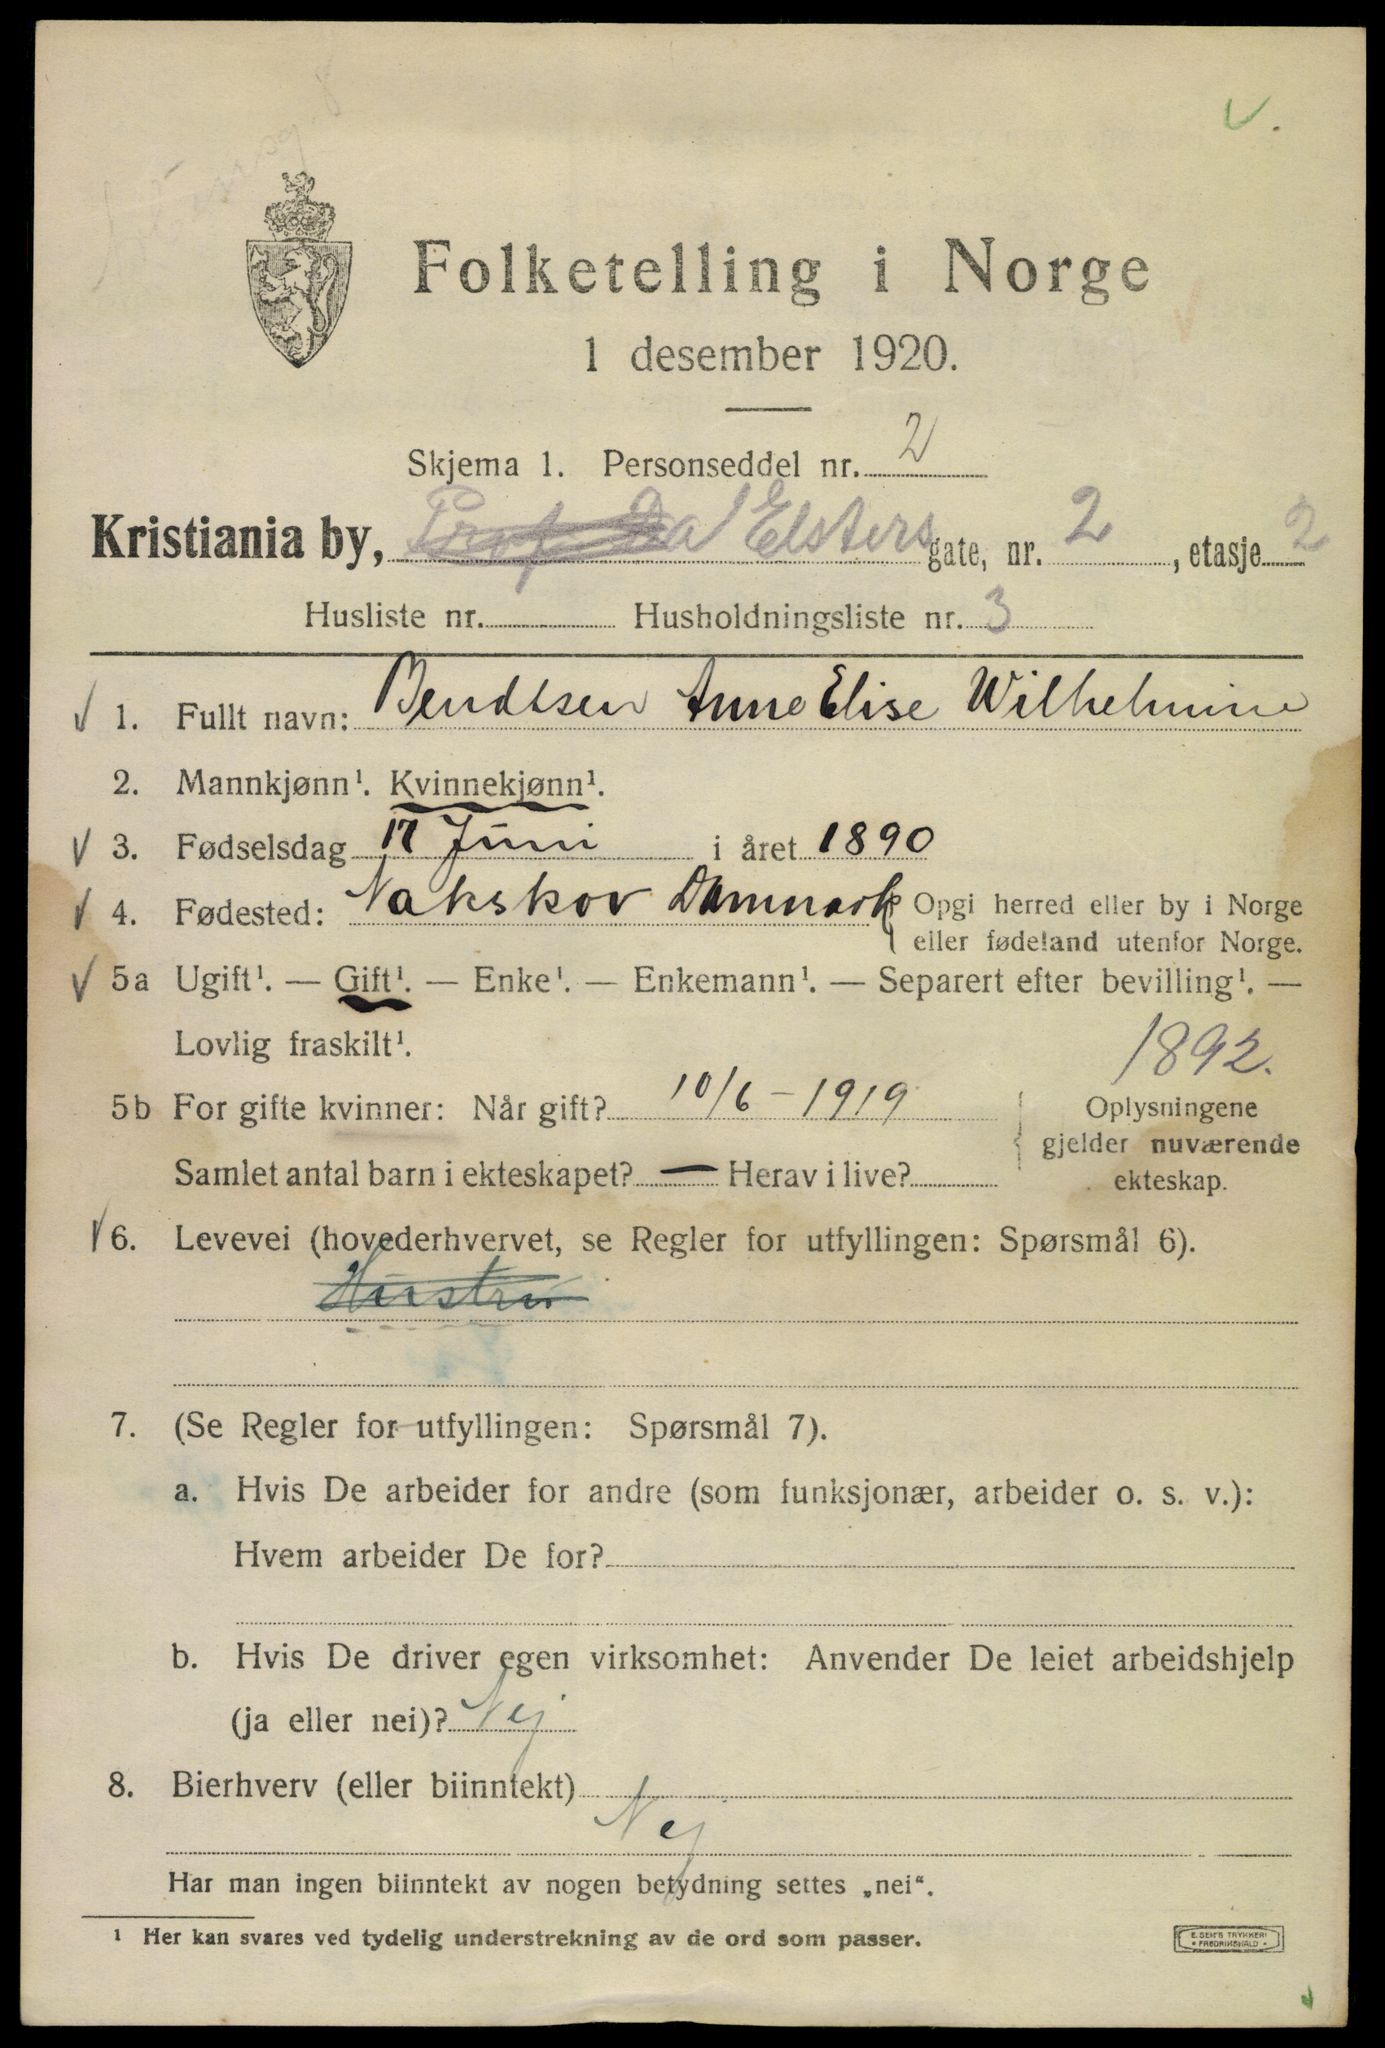 Folketelling i Norge
1 desember 1920.
Skjema 1. Personseddel nr. 2
Kristiania by, Prof Da Elsters gate, nr. 2, etasje 2
Husliste nr. Husholdningsliste nr. 3
1. Fullt navn: Bendtsen Anne Elise Wilhelmine
2. Mannkjønn¹. Kvinnekjønn¹.
3. Fødselsdag 17 Juni i året 1890
4. Fødested: Nakskov Danmark Opgi herred eller by i Norge
eller fødeland utenfor Norge.
5a Ugift¹. — Gift¹. — Enke¹. — Enkemann¹. — Separert efter bevilling¹. —
Lovlig fraskilt¹.
1892.
5b For gifte kvinner: Når gift? 10/6 - 1919 Oplysningene
gjelder nuværende
Samlet antal barn i ekteskapet? — Herav i live? ekteskap.
6. Levevei (hovederhvervet, se Regler for utfyllingen: Spørsmål 6).
Hustru
7. (Se Regler for utfyllingen: Spørsmål 7).
a. Hvis De arbeider for andre (som funksjonær, arbeider o. s. v.):
Hvem arbeider De for?
b. Hvis De driver egen virksomhet: Anvender De leiet arbeidshjelp
(ja eller nei)? Nej
8. Bierhverv (eller biinntekt)
Nej
Har man ingen biinntekt av nogen betydning settes „nei“.
¹ Her kan svares ved tydelig understrekning av de ord som passer.
E. SEM'S TRYKKERI
• FREDRIKSHALD •